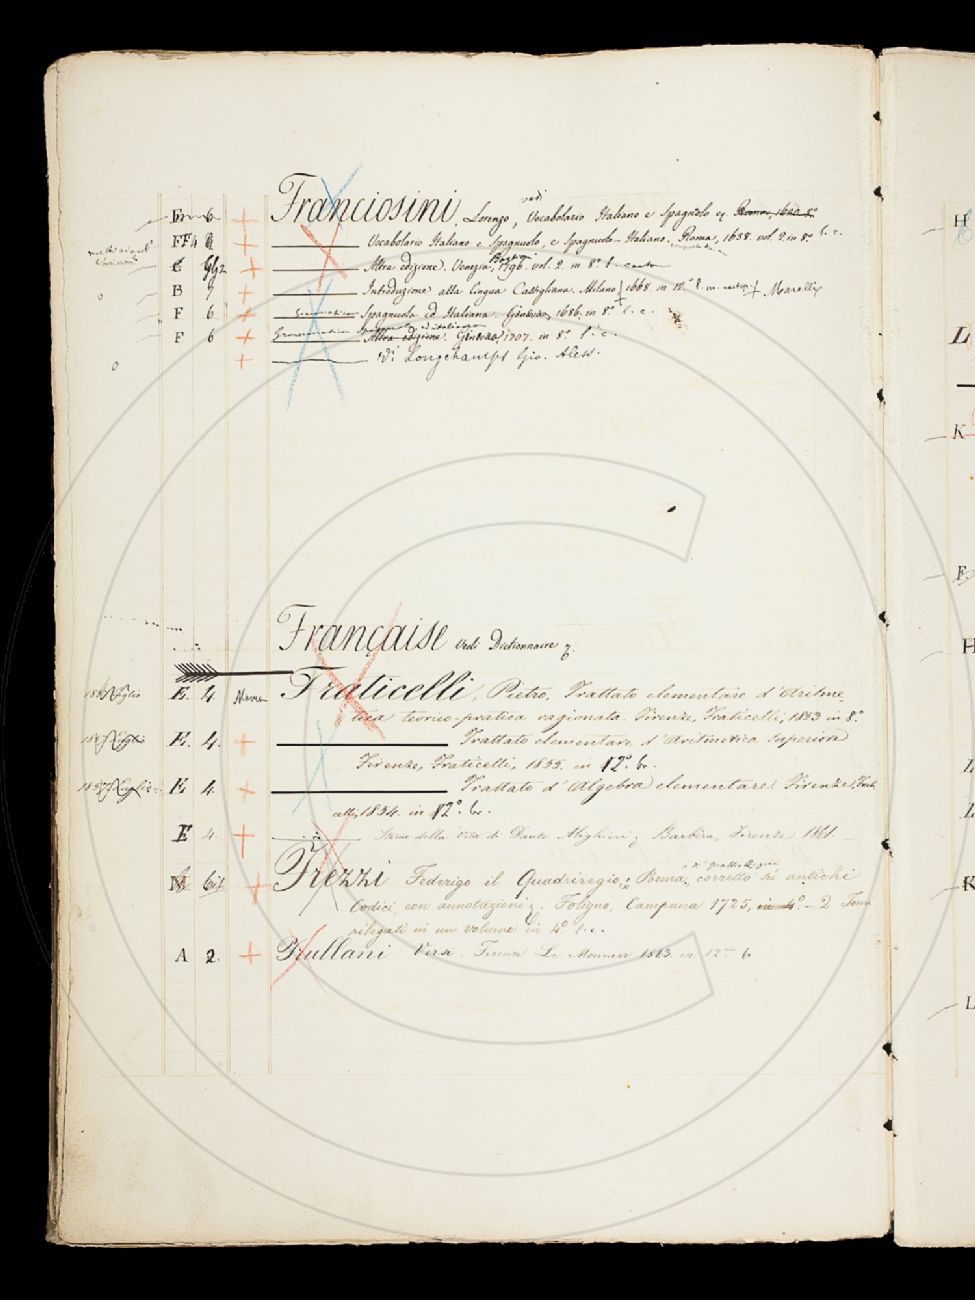 E 6 Franciosini, Lorenzo, vedi Vocabolario Italiano e Spagnolo ec. Roma 1620 8°
FF4 Vocabolario Italiano e Spagnuolo, e Spagnuolo-Italiano. Roma, 1638. vol. 2 in 8°. l. c.
Altra edizione. Venezia, 1796. vol. 2. in 8°.
B 7 Introduzione alla lingua Castigliana. Milano 1668. in 12° Marelli
F 6 Grammatica Spagnuola ed Italiana. Ginevra, 1686. in 8° l. c.
F 6 Grammatica Spagnuola ed italiana Altra edizione. Ginevra 1707. in 8°. l. c.
Gio. Aless.
Française Vedi Dictionnaire
E. 4. Fraticelli, Pietro, Trattato elementare d'Aritme
tica teorico-pratica ragionata. Firenze, Fraticelli, 1853. in 8°.
E. 4. Trattato elementare d'Aritmetica superiore
Firenze, Fraticelli, 1855. in 12°. br.
1857 Luglio E. 4. Trattato d'Algebra elementare Firenze, Frati
celli, 1854. in 12°. br.
E 4. Storia della Vita di Dante Alighieri, Barbèra, Firenze 1861
Frezzi Federigo il Quadriregio, Poema, corretto su antichi
Codici, con annotazioni. Foligno, Campana 1725, in 4°. - 2 Tomi
rilegati in un volume in 4° l. c.
A 2. Frullani Versi. Firenze Le Monnier 1863. in 12 b
H
L
K
F
H
L
L
K
L